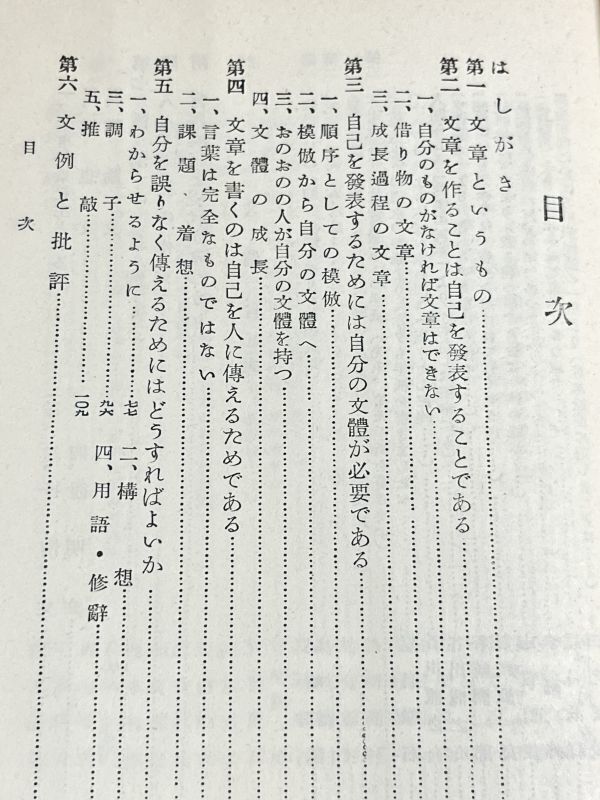 目次
はしがき
第一 文章というもの
第二 文章を作ることは自己を發表することである
一、自分のものがなければ文章はできない
二、借り物の文章
三、成長過程の文章
第三 自己を發表するためには自分の文體が必要である
一、順序としての模倣
二、模倣から自分の文體へ
三、おのおのの人が自分の文體を持つ
四、文體の成長
第四 文章を書くのは自己を人に傳えるためである
一、言葉は完全なものではない
二、課題 着想
第五 自分を誤りなく傳えるためにはどうすればよいか
一、わからせるように……七七 二、構想
三、調子……九六 四、用語・修辭
五、推敲……一〇九
第六 文例と批評
目次